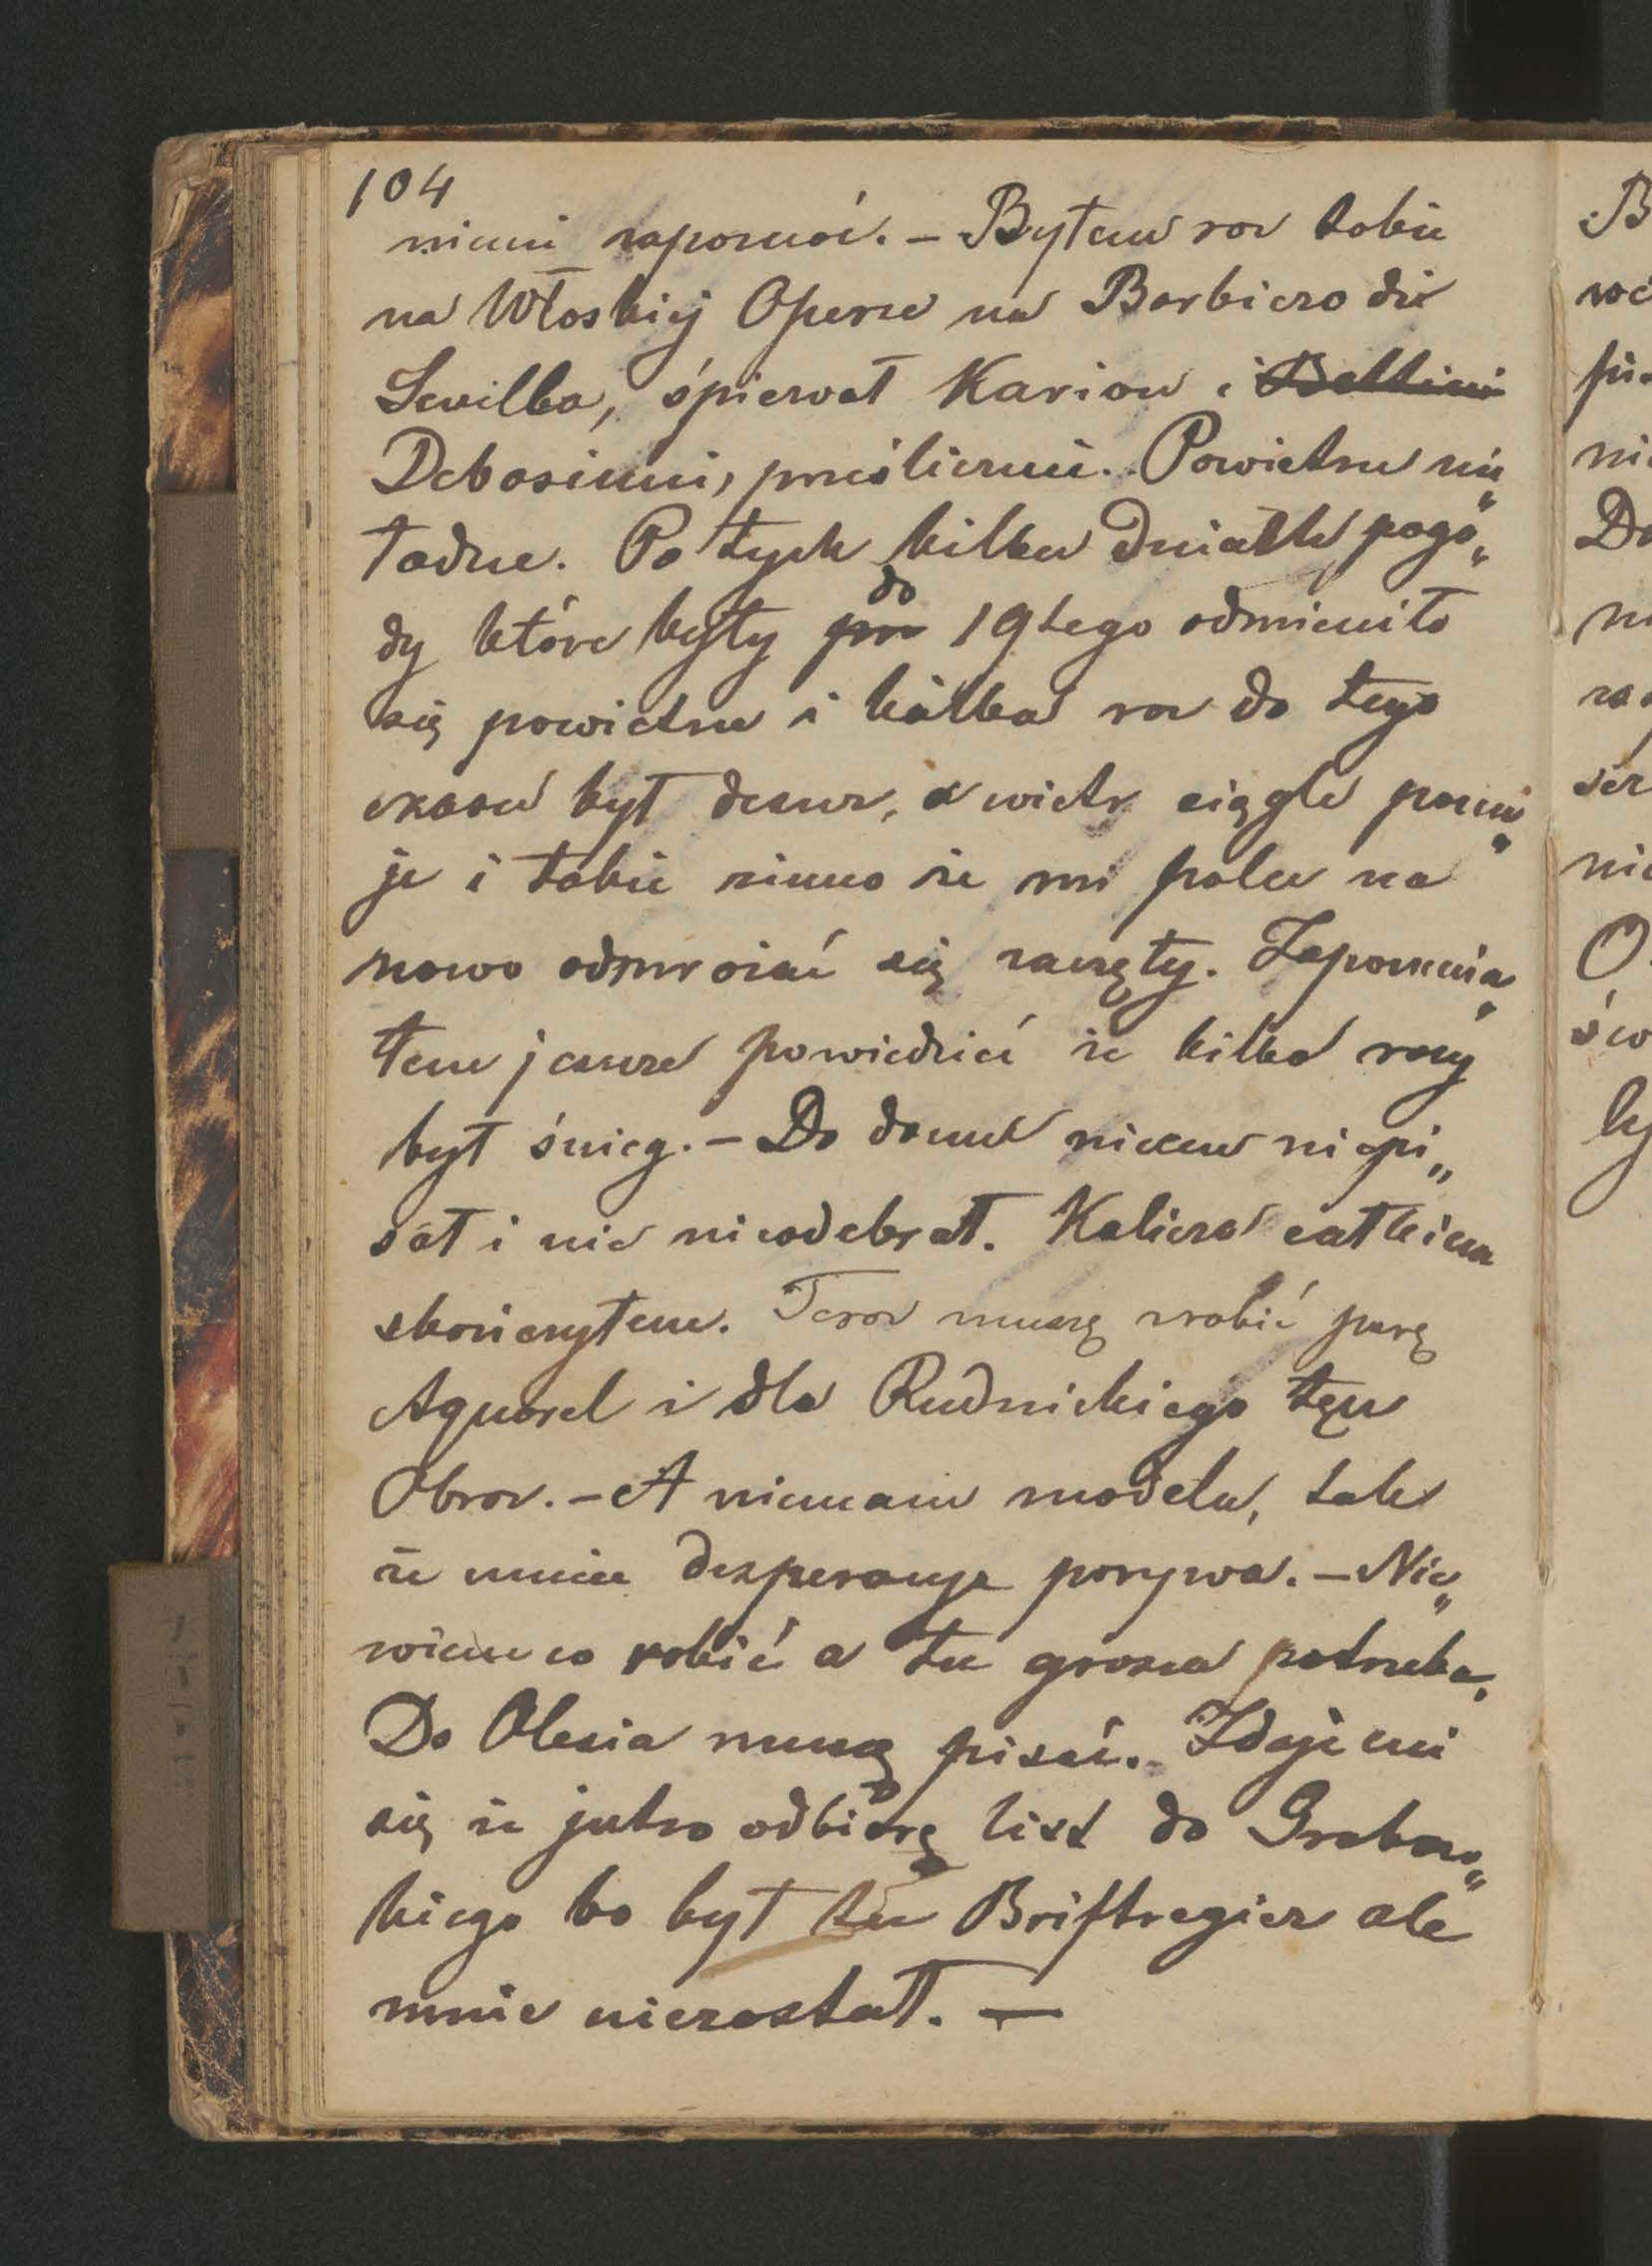 104
niemi zapoznać. – Byłem raz także
na Włoskiej Operze na Barbiero di
Sevilla, śpiewał Karion i Bettini
Debasinni, prześlicznie. Powietrze nie„
ładne. Po tych kilku dniach pogo„
dy które były do 19tego odmieniło
się powietrze i kilka raz do tego
czasu był deszcz, a wiatr ciągle panu„
je i takie zimno że mi palce na
nowo odmrozać się zaczęły. Zapomnia„
łem jeszcze powiedzieć że kilka razy
był śnieg. – Do domu niczem niepi„
sał i nic nieodebrał. Kalisza całkiem
skończyłem. Teraz muszę zrobić parę
Aquarel i dla Rudnickiego ten
Obraz. – A niemam modelu, tak
że mnie desperacyja porywa. – Nie„
wiem co robić a tu grosza potrzeba,
Do Olesia muszę pisać. Zdaje mi
się że jutro odbiorę list do Grabow„
kiego bo był tu Briftregier ale
mnie niezastał. —
B
ni
D
O
ly